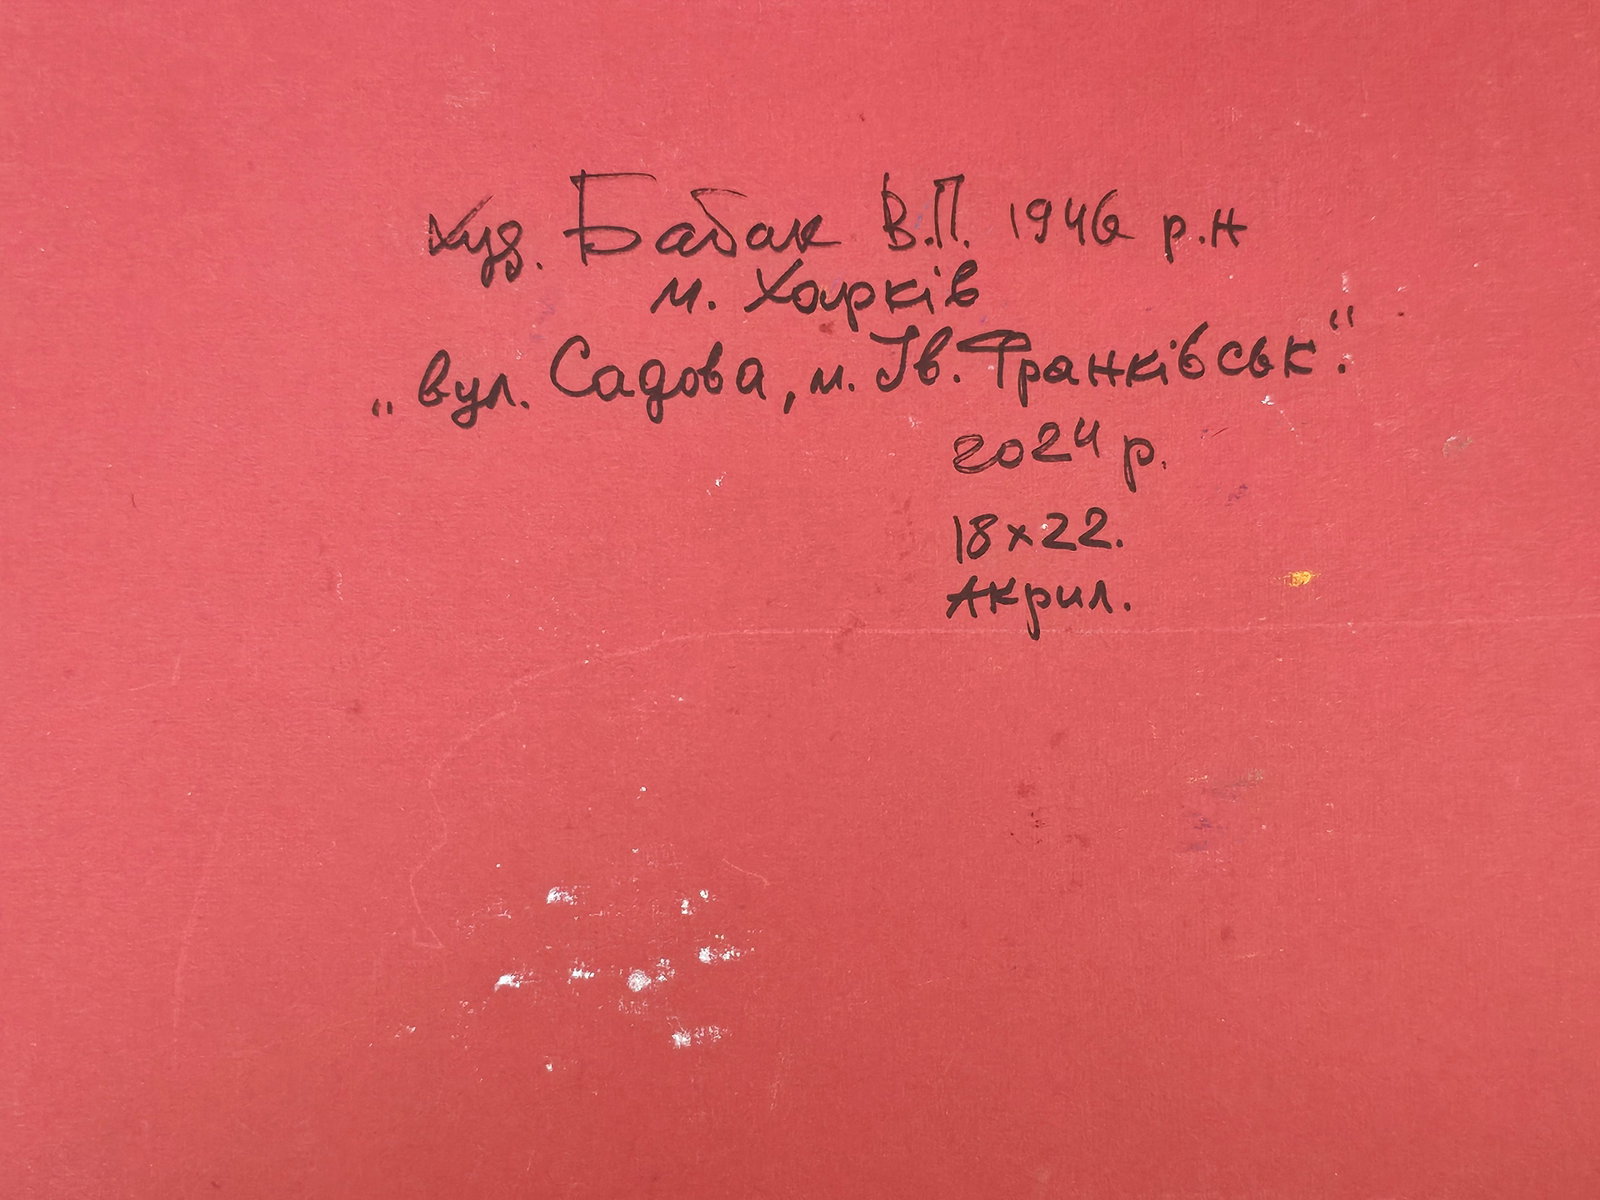 худ. Бабак В.П. 1946 р.н
м. Харків
„вул. Садова, м. Ів. Франківськ".
2024 р.
18х22.
Акрил.